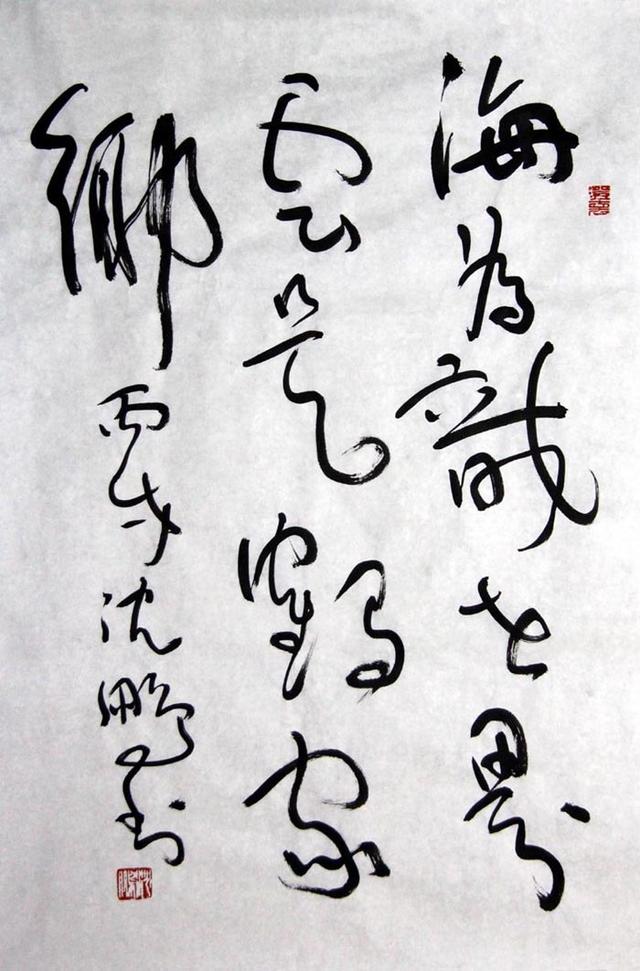 海為龍世界
雲是鶴家
鄉
丙戌沈鵬書